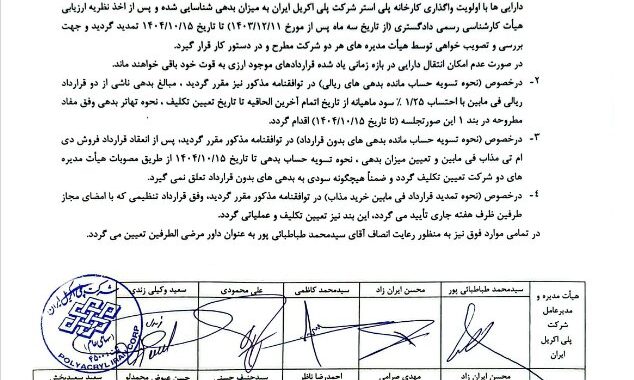 دارایی ها با اولویت واگذاری کارخانه پلی استر شرکت پلی اکریل ایران به میزان بدهی شناسایی شده و پس از اخذ نظریه ارزیابی
هیأت کارشناسی رسمی دادگستری (از تاریخ سه ماه پس از مورخ ۱۴۰۳/۱۲/۱۱) تا تاریخ ۱۴۰۴/۱۰/۱۵ تمدید گردید و جهت
بررسی و تصویب خواهی توسط هیأت مدیره های هر دو شرکت مطرح و در دستور کار قرار گیرد.
در صورت عدم امکان انتقال دارایی در بازه زمانی یاد شده قراردادهای موجود ارزی به قوت خود باقی خواهند ماند.
۲- درخصوص (نحوه تسویه حساب مانده بدهی های ریالی) در توافقنامه مذکور نیز مقرر گردید ، مبالغ بدهی ناشی از دو قرارداد
ریالی فی مابین با احتساب ۱/۲۵ ٪ سود ماهیانه از تاریخ اتمام آخرین الحاقیه تا تاریخ تعیین تکلیف ، نحوه تهاتر بدهی وفق مفاد
مطروحه در بند ۱ این صورتجلسه (تا تاریخ ۱۴۰۴/۱۰/۱۵) اقدام گردد.
۳- درخصوص (نحوه تسویه حساب مانده بدهی های بدون قرارداد) در توافقنامه مذکور مقرر گردید، پس از انعقاد قرارداد فروش دی
ام تی مذاب فی مابین و تعیین میزان بدهی ، نحوه تسویه حساب بدهی تا تاریخ ۱۴۰۴/۱۰/۱۵ از طریق مصوبات هیأت مدیره
های دو شرکت تعیین تکلیف گردد و ضمناً هیچگونه سودی به بدهی های بدون قرارداد تعلق نمی گیرد.
۴- درخصوص (نحوه تمدید قرارداد فی مابین خرید مذاب) در توافقنامه مذکور مقرر گردید، وفق قرارداد تنظیمی که با امضای مجاز
طرفین ظرف هفته جاری تأیید می گردد، این بند نیز تعیین تکلیف و عملیاتی گردد.
در تمامی موارد فوق نیز به منظور رعایت انصاف آقای سیدمحمد طباطبائی پور به عنوان داور مرضی الطرفین تعیین می گردد.
هیأت مدیره و
مدیرعامل
شرکت
پلی اکریل
ایران
سیدمحمد طباطبائی پور
محسن ایران زاد
سیدمحمد کاظمی
علی محمودی
سعید وکیلی زندی
شرکت پلی اکریل ایران
(سهامی عام)
POLYACRYL IRAN CORP
محسن ایران زاد
مهدی صرامی
احمدرضا ناظر
سیدحنیف حسنی
حسن عیوض محمدلو
سعید سعیدبخش